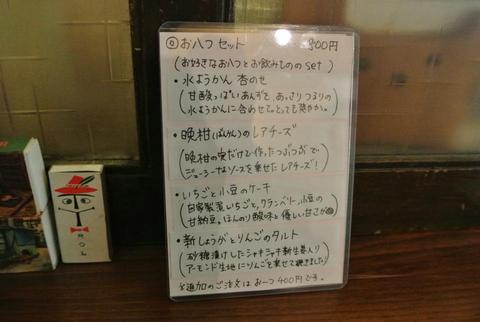 ◎お八つセット 800円
(お好きなお八つとお飲みもののset)
・水ようかん 杏のせ
(甘酸っぱいあんずを、あっさりつるりの
水ようかんに合わせて。とっても爽やか。)
・晩柑(ばんかん)のレアチーズ
(晩柑の実だけで作ったつぶつぶで
ジューシーなソースを乗せたレアチーズ!)
・いちごと小豆のケーキ
(自家製蜜いちごと、クランベリー、小豆の
甘納豆。ほんのり酸味と優しい甘さが
・新しょうがとりんごのタルト
(砂糖漬けしたシャキシャキ新生姜入り
アーモンド生地にりんごを乗せて焼きました!)
※追加のご注文は お一つ 400円です。